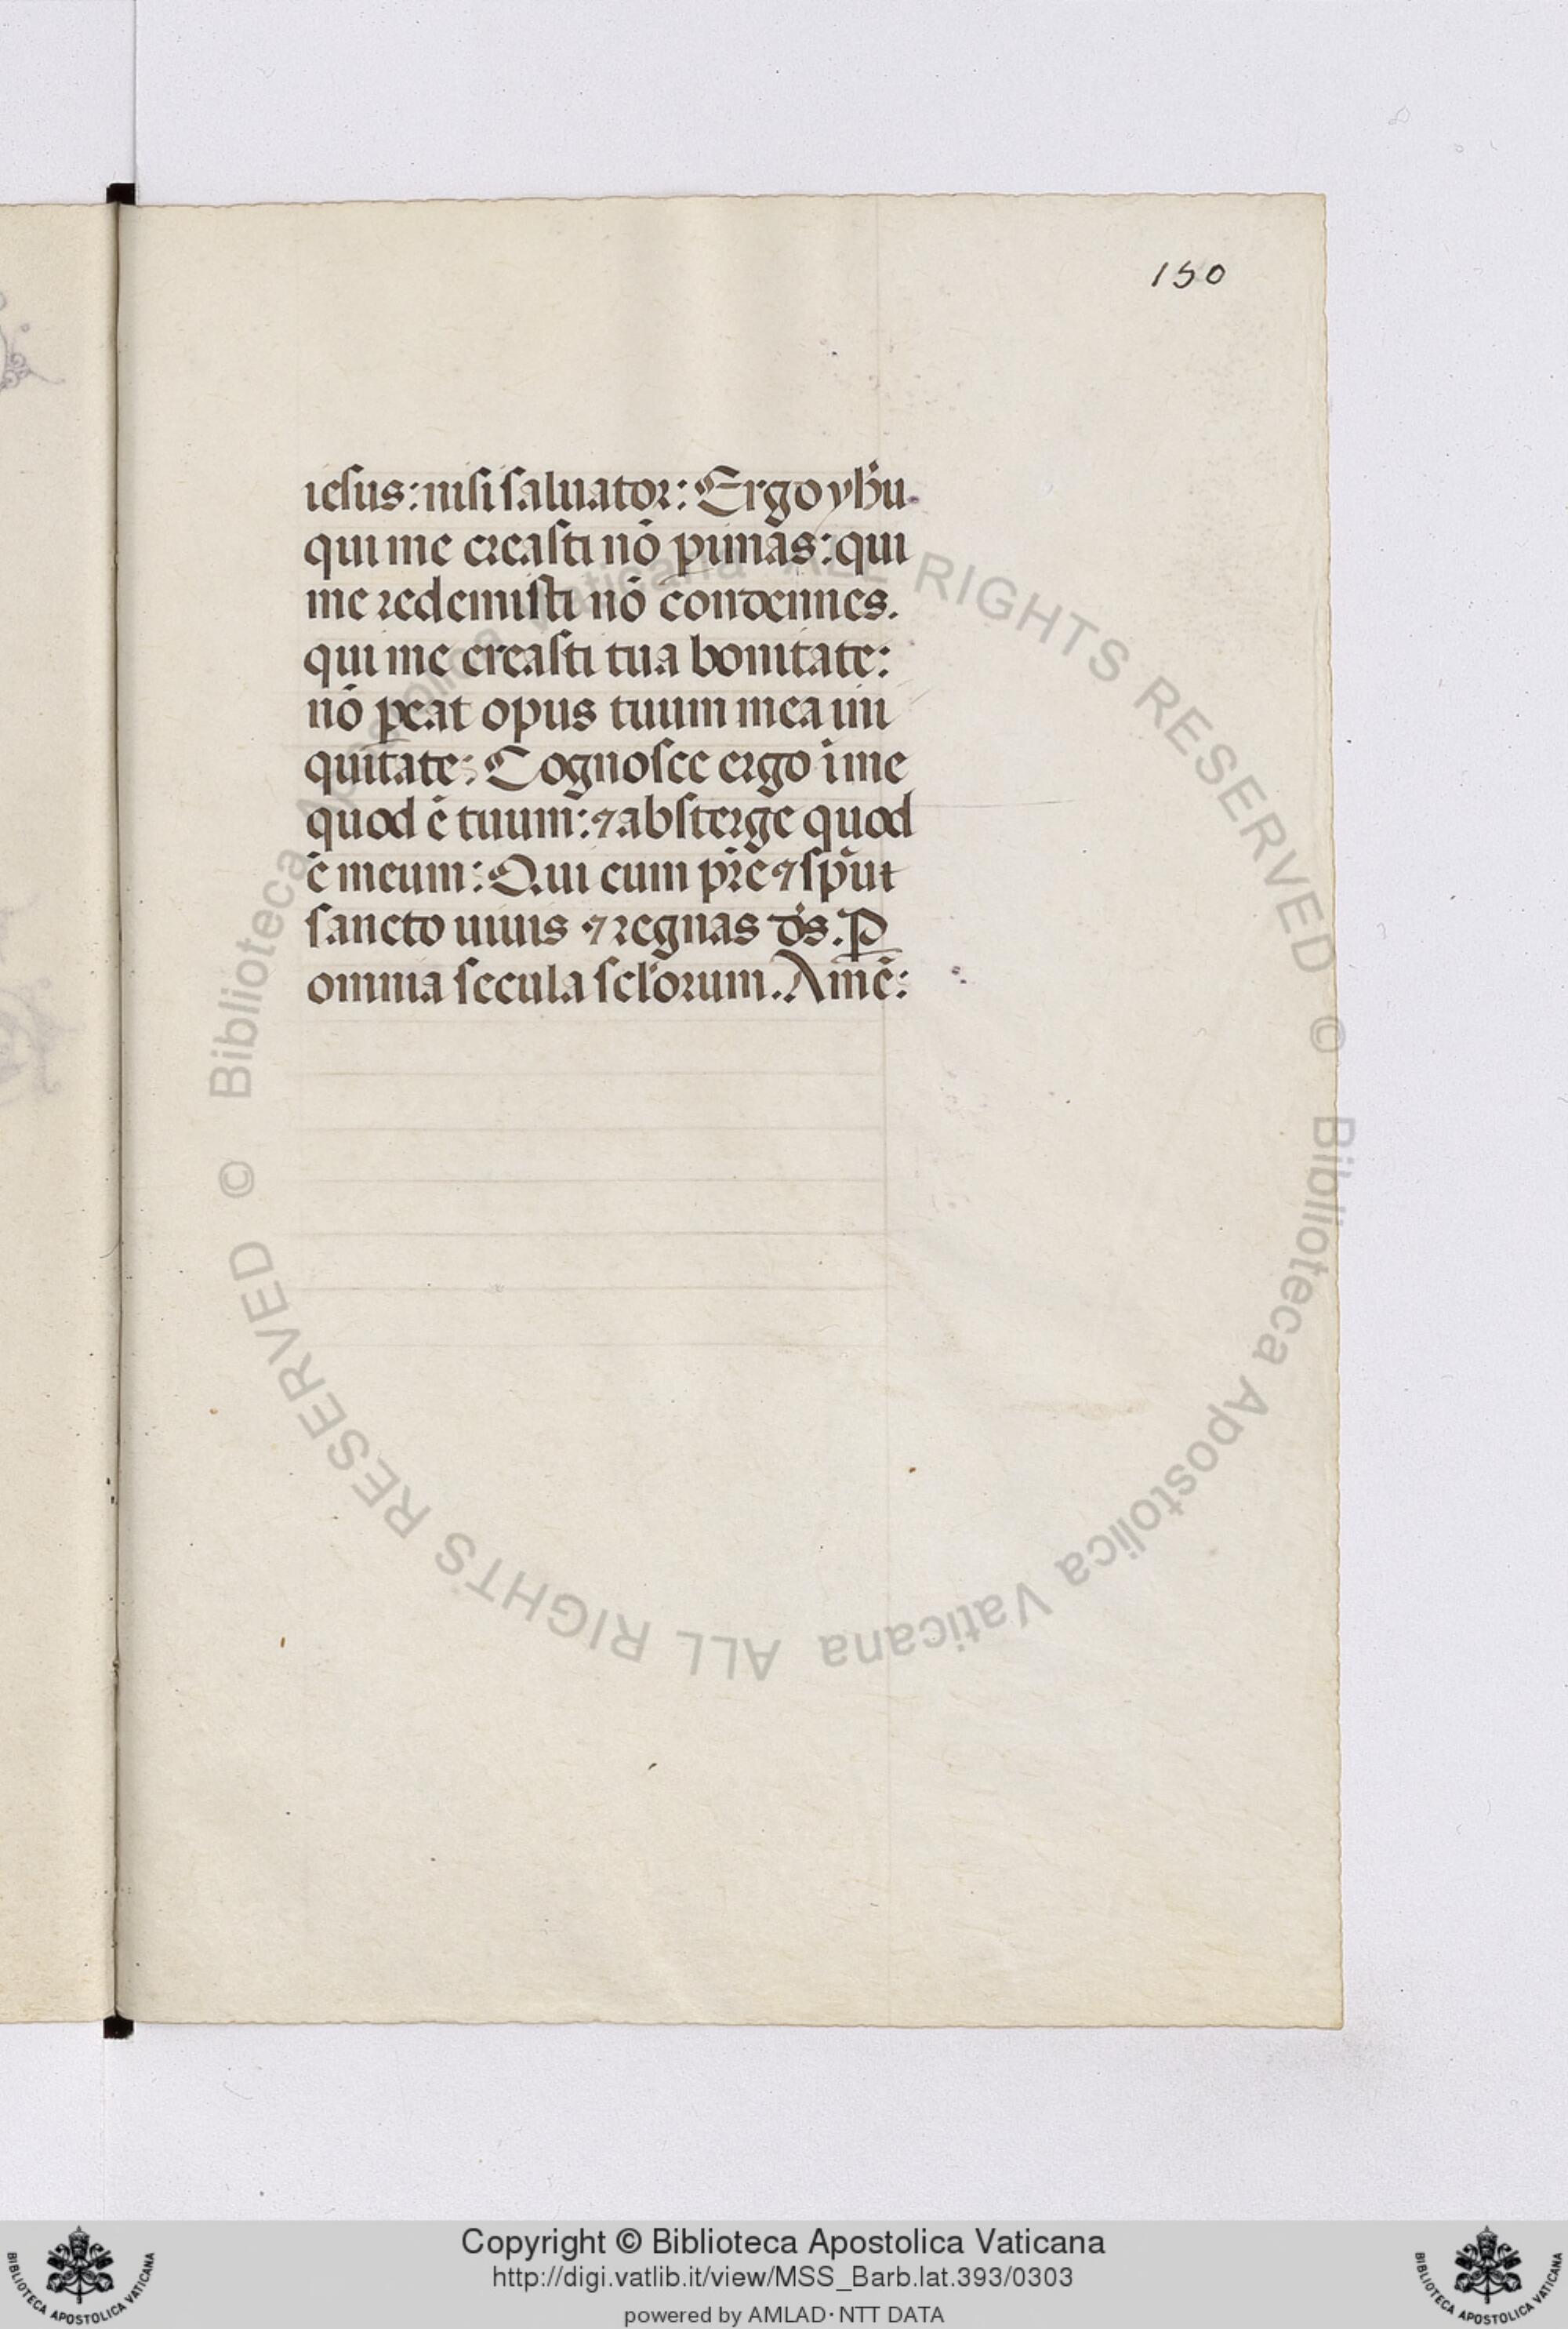 150
iesus: nisi saluator: Ergo yħu
qui me creasti nō pimas: qui
me redemisti nō condennes.
qui me creasti tua bonitate:
nō ꝑeat opus tuum mea ini
quitate: Cognosce ergo ī me
quod ē tuum: ⁊ absterge quod
ē meum: Qui cum pr̄e ⁊ sp̄ut
sancto uiuis ⁊ regnas d̄s. Ꝑ
omnia secula scl̄orum. Amē:
© Biblioteca Apostolica Vaticana ALL RIGHTS RESERVED
© Biblioteca Apostolica Vaticana ALL RIGHTS RESERVED
BIBLIOTECA APOSTOLICA VATICANA
Copyright © Biblioteca Apostolica Vaticana
http://digi.vatlib.it/view/MSS_Barb.lat.393/0303
powered by AMLAD·NTT DATA
BIBLIOTECA APOSTOLICA VATICANA